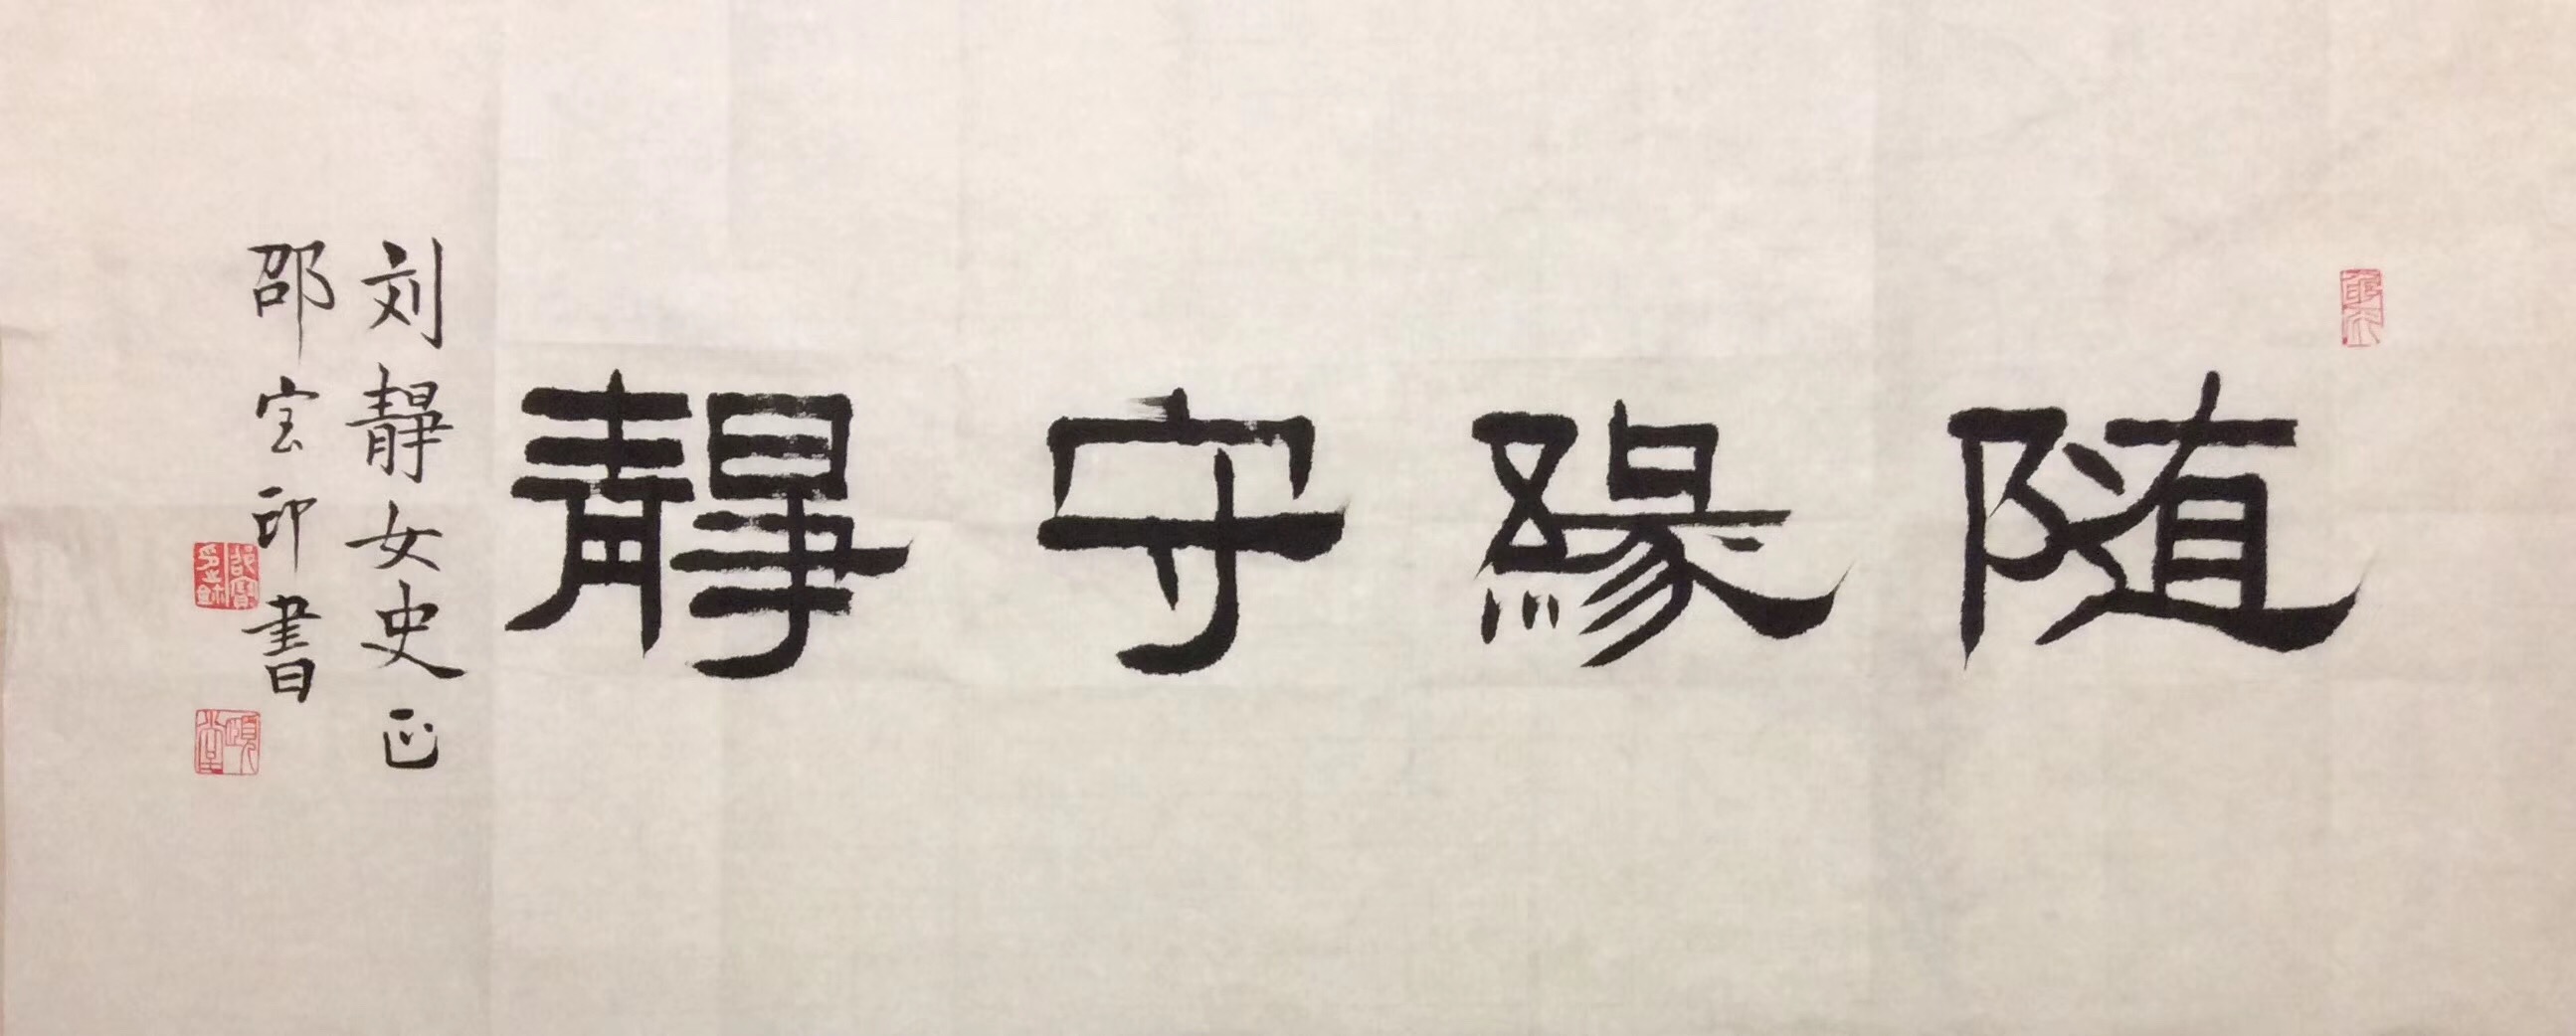 随緣守靜
刘靜女史正
邵宝印書